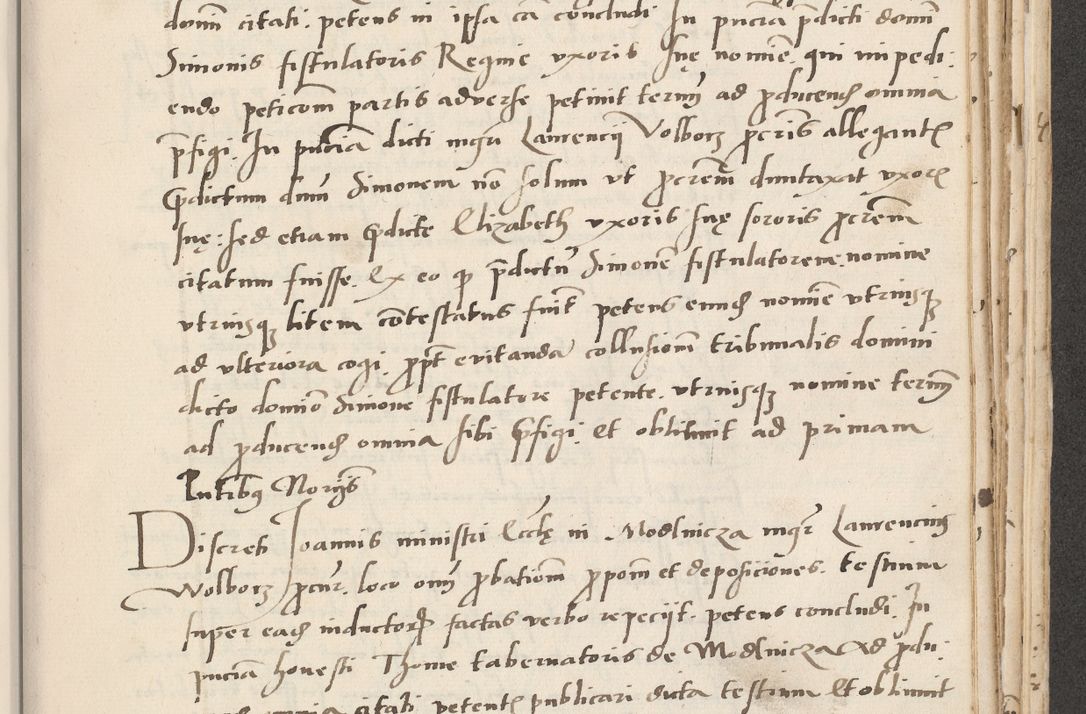 domini citati. petens in ipsa cã concludi. In pñciã p̃dicti domini
Simonis fistulatoris Regine vxoris sue nomine. qui impedi-
endo peticionem partis aduerse petiuit termĩ ad p̱ducend̃ omnia
p̃figi. In pñciã dicti mgr̃i Laurencij Volborz p̱cris allegantis
p̃dictum dnm̃ Simonem nõ solum vt p̱crem̃ duntaxat vxoris
sue: sed etiam p̃dicte Elizabeth vxoris sue sororis p̱crem̃
citatum fuisse. Ex eo qp p̃dictũ Simonẽ fistulatorem. nomine
vtriusq3 litem cõtestatus fuit petens eund̃ nomĩe vtriusq3
ad vlteriora cogi. p̱pt̃ euitanda collusionem tribunalis domini
dicto domino Simone fistulatore petente. vtriusq3 nomine termĩ
ad p̱ducend̃ omnia sibi p̃figi. Et obtinuit ad primam
Discreti Ioannis ministri Eccl̃e in Modlnicza mgr̃ Laurencius
Wolborz p̱cur̃. loco om̃ p̱bationem p̱pom̃ et deposiciones. testium
super ead̃ inductorum factas verbo repeciit. petens concludi. In
pñciã honesti Thome tabernatoris de Modlnicza Ad p̱du-
omnia citati. petentis publicari dicta testium Et obtinuit